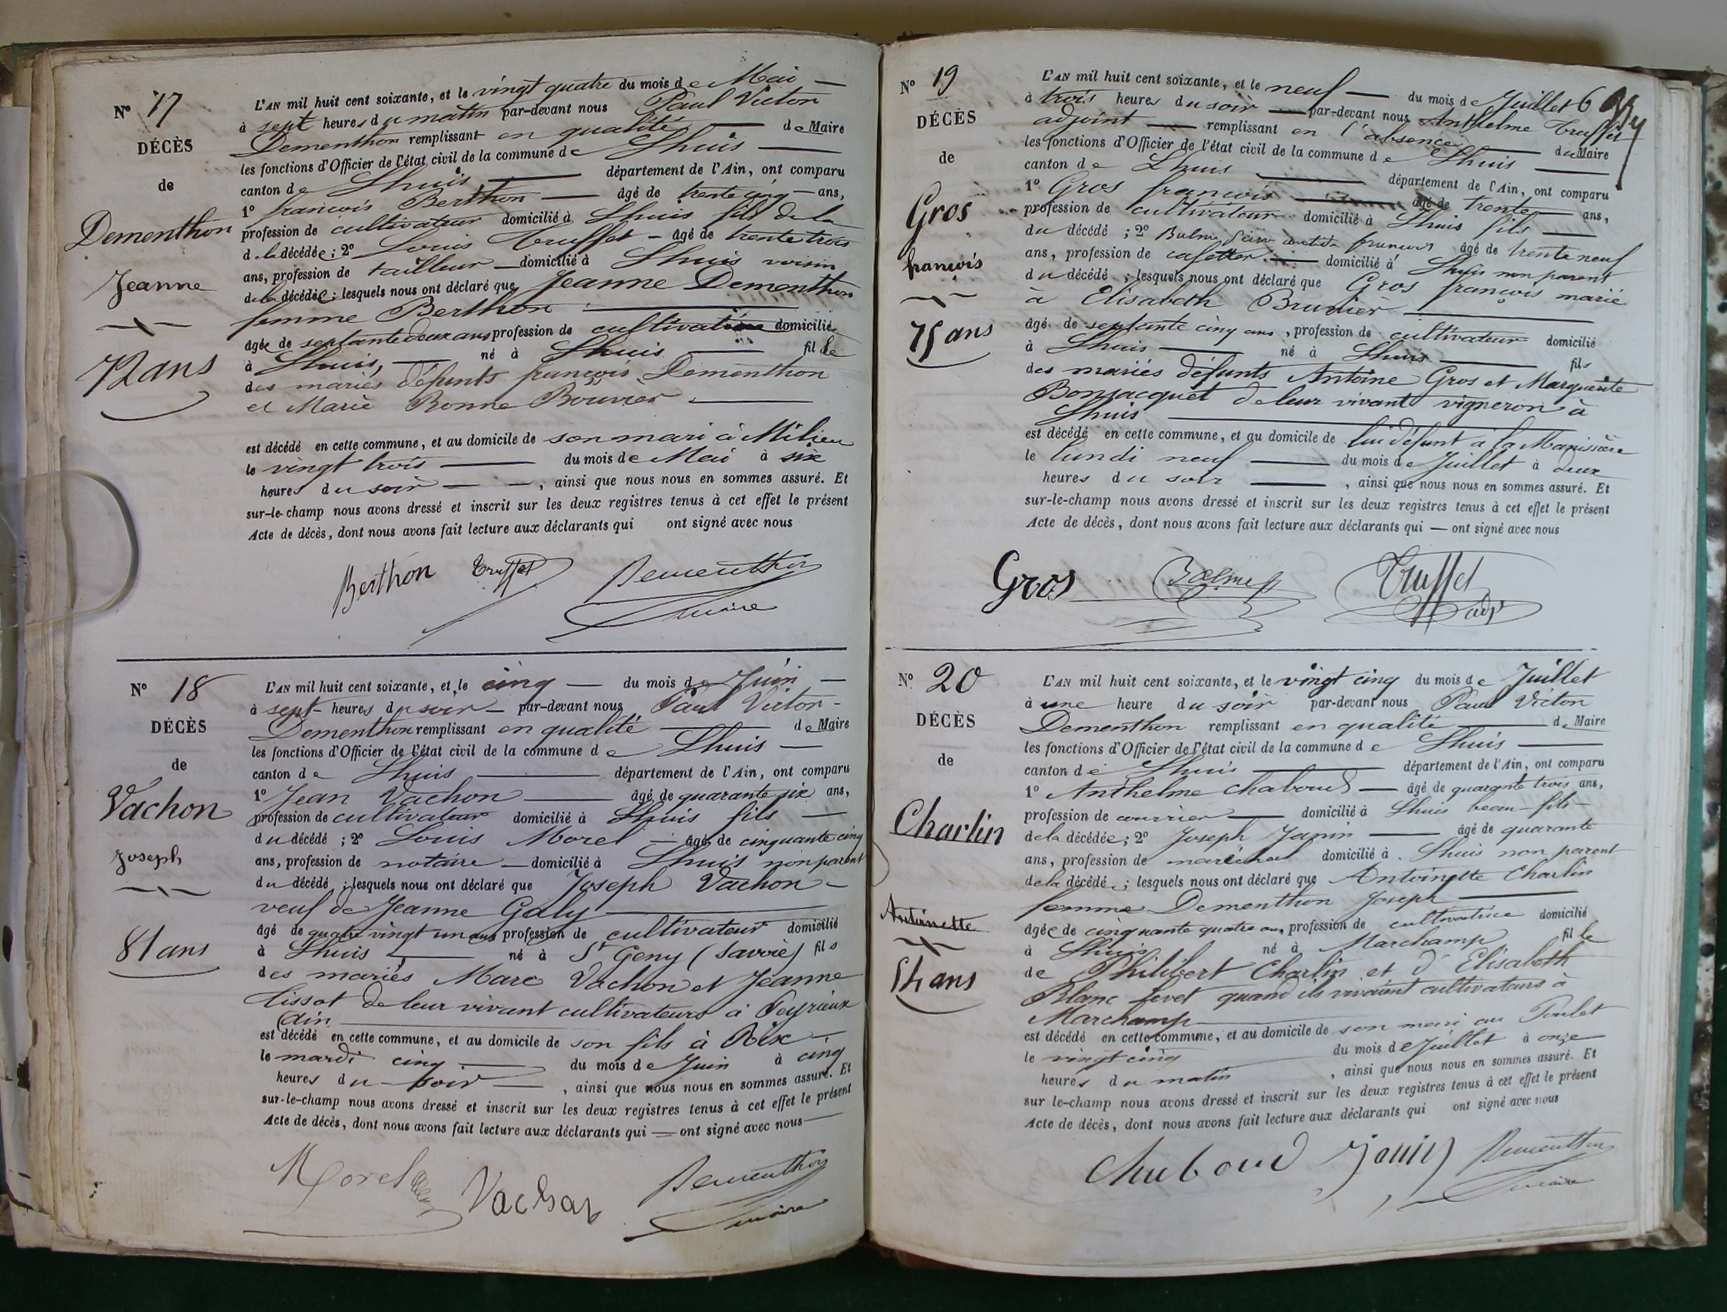 N° 17
DÉCÈS
de
Dementhon
Jeanne
72 ans
L'AN mil huit cent soixante, et le vingt quatre du mois de Mai
à sept heures du matin par-devant nous Paul Victor
Dementhon remplissant en qualité de Maire
les fonctions d'Officier de l'état civil de la commune de Lhuis
canton de Lhuis département de l'Ain, ont comparu
1° françois Berthon âgé de trente cinq ans,
profession de cultivateur domicilié à Lhuis fils de la
de la décédée ; 2° Louis Truffet âgé de trente trois
ans, profession de tailleur domicilié à Lhuis voisin
de la décédée ; lesquels nous ont déclaré que Jeanne Dementhon
femme Berthon
âgée de septante deux ans profession de cultivatrice domiciliée
à Lhuis, né à Lhuis fille
des mariés défunts françois Dementhon
et Marie Bonne Bouvier
est décédé en cette commune, et au domicile de son mari à Milieu
le vingt trois du mois de Mai à six
heures du soir , ainsi que nous nous en sommes assuré. Et
sur-le-champ nous avons dressé et inscrit sur les deux registres tenus à cet effet le présent
Acte de décès, dont nous avons fait lecture aux déclarants qui ont signé avec nous
Berthon Truffet Dementhon
maire
N° 18
DÉCÈS
de
Vachon
Joseph
81 ans
L'AN mil huit cent soixante, et le cinq du mois de Juin
à sept heures du soir par-devant nous Paul Victor
Dementhon remplissant en qualité de Maire
les fonctions d'Officier de l'état civil de la commune de Lhuis
canton de Lhuis département de l'Ain, ont comparu
1° Jean Vachon âgé de quarante six ans,
profession de cultivateur domicilié à Lhuis fils
du décédé ; 2° Louis Morel âgé de cinquante cinq
ans, profession de notaire domicilié à Lhuis non parent
du décédé ; lesquels nous ont déclaré que Joseph Vachon
veuf de Jeanne Galy
âgé de quatre vingt un ans profession de cultivateur domicilié
à Lhuis né à St Geny (Savoie) fils
des mariés Marc Vachon et Jeanne
Tissot de leur vivant cultivateurs à Peyrieux
(ain
est décédé en cette commune, et au domicile de son fils à Rix
le mardi cinq du mois de Juin à cinq
heures du soir , ainsi que nous nous en sommes assuré. Et
sur-le-champ nous avons dressé et inscrit sur les deux registres tenus à cet effet le présent
Acte de décès, dont nous avons fait lecture aux déclarants qui ont signé avec nous
Morel Vachon Dementhon
maire
N° 19
DÉCÈS
de
Gros
françois
75 ans
L'AN mil huit cent soixante, et le neuf du mois de Juillet
à trois heures du soir par-devant nous Anthelme Truffet
adjoint remplissant en l'absence du Maire
les fonctions d'Officier de l'état civil de la commune de Lhuis
canton de Lhuis département de l'Ain, ont comparu
1° Gros françois âgé de trente ans,
profession de cultivateur domicilié à Lhuis fils
du décédé ; 2° françois âgé de trente neuf
ans, profession de cafetier domicilié à Lhuis non parent
du décédé ; lesquels nous ont déclaré que Gros françois marié
à Elisabeth Brunier
âgé de septante cinq ans, profession de cultivateur domicilié
à Lhuis né à Lhuis fils
des mariés défunts Antoine Gros et Marguerite
Bonjacquet de leur vivant vigneron à
Lhuis
est décédé en cette commune, et au domicile de lui défunt à la Manissière
le lundi neuf du mois de Juillet à deux
heures du soir , ainsi que nous nous en sommes assuré. Et
sur-le-champ nous avons dressé et inscrit sur les deux registres tenus à cet effet le présent
Acte de décès, dont nous avons fait lecture aux déclarants qui ont signé avec nous
Gros Balme Truffet
adjt
N° 20
DÉCÈS
de
Charlin
Antoinette
54 ans
L'AN mil huit cent soixante, et le vingt cinq du mois de Juillet
à une heure du soir par-devant nous Paul Victor
Dementhon remplissant en qualité de Maire
les fonctions d'Officier de l'état civil de la commune de Lhuis
canton de Lhuis département de l'Ain, ont comparu
1° Anthelme Chaboud âgé de quarante trois ans,
profession de domicilié à Lhuis beau-fils
de la décédée ; 2° Joseph Janin âgé de quarante
ans, profession de maréchal domicilié à Lhuis non parent
de la décédée ; lesquels nous ont déclaré que Antoinette Charlin
femme Dementhon Joseph
âgée de cinquante quatre ans, profession de cultivatrice domicilié
à Lhuis né à Marchamp fille
de Philibert Charlin et d'Elisabeth
Blanc fevet quand ils vivaient cultivateurs à
Marchamp
est décédé en cette commune, et au domicile de son mari au Poulet
le vingt cinq du mois de Juillet à onze
heures du matin , ainsi que nous nous en sommes assuré. Et
sur le-champ nous avons dressé et inscrit sur les deux registres tenus à cet effet le présent
Acte de décès, dont nous avons fait lecture aux déclarants qui ont signé avec nous
Chaboud Janin Dementhon
maire